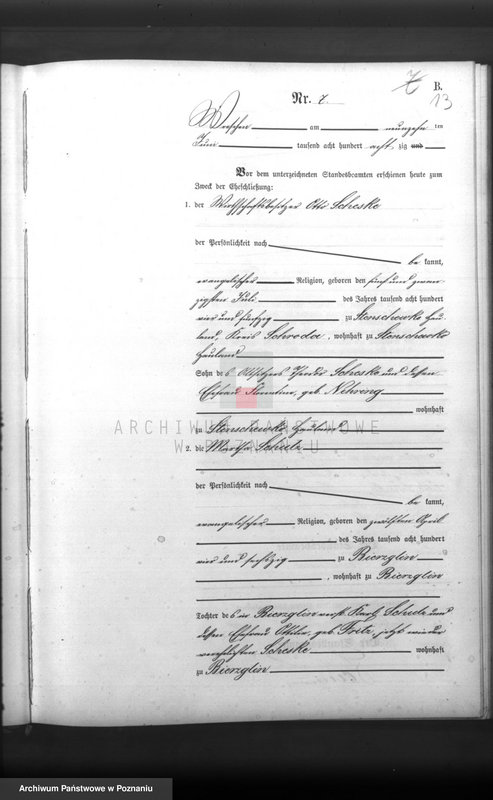 B.
13
Nr. 7.
Wreschen am neunzehn ten
Juni tausend acht hundert acht zig und
Vor dem unterzeichneten Standesbeamten erschienen heute zum
Zweck der Eheschließung:
1. der Wirthschaftsbesitzer Otto Scheske
der Persönlichkeit nach
be kannt,
evangelischer Religion, geboren den fünf und zwan
zigsten Juli des Jahres tausend acht hundert
vier und fünfzig zu Stenschewko Hau
land, Kreis Schroda, wohnhaft zu Stenschewko
Hauland
Sohn des Altsitzers Theodor Scheske und dessen
Ehefrau Florentine, geb. Nehring
wohnhaft
zu Stenschewko Hauland
ARCHIWUM PAŃSTWOWE
W POZNANIU
2. die Martha Schulz
der Persönlichkeit nach
be kannt,
evangelischer Religion, geboren den zwölften April
des Jahres tausend acht hundert
vier und sechszig zu Bierzglin
, wohnhaft zu Bierzglin
Tochter des in Bierzglin verst. Karl Schulz und
dessen Ehefrau Ottilie, geb. Fritz, jetzt wieder
verehelichten Scheske wohnhaft
zu Bierzglin
Archiwum Państwowe w Poznaniu